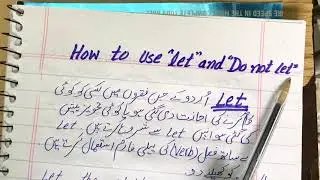 How to use "Let" and "Do not Let"
Let اُردو کے جن فقروں میں کسی کو کوئی
کام کرنے کی اجازت دی گئی ہو یا کوئی تجویز پیش
کی گئی ہو انہیں Let سے شروع کرتے ہیں۔ Let
کے ساتھ فعل (Verb) کی پہلی فارم استعمال کرتے ہیں۔
Let the